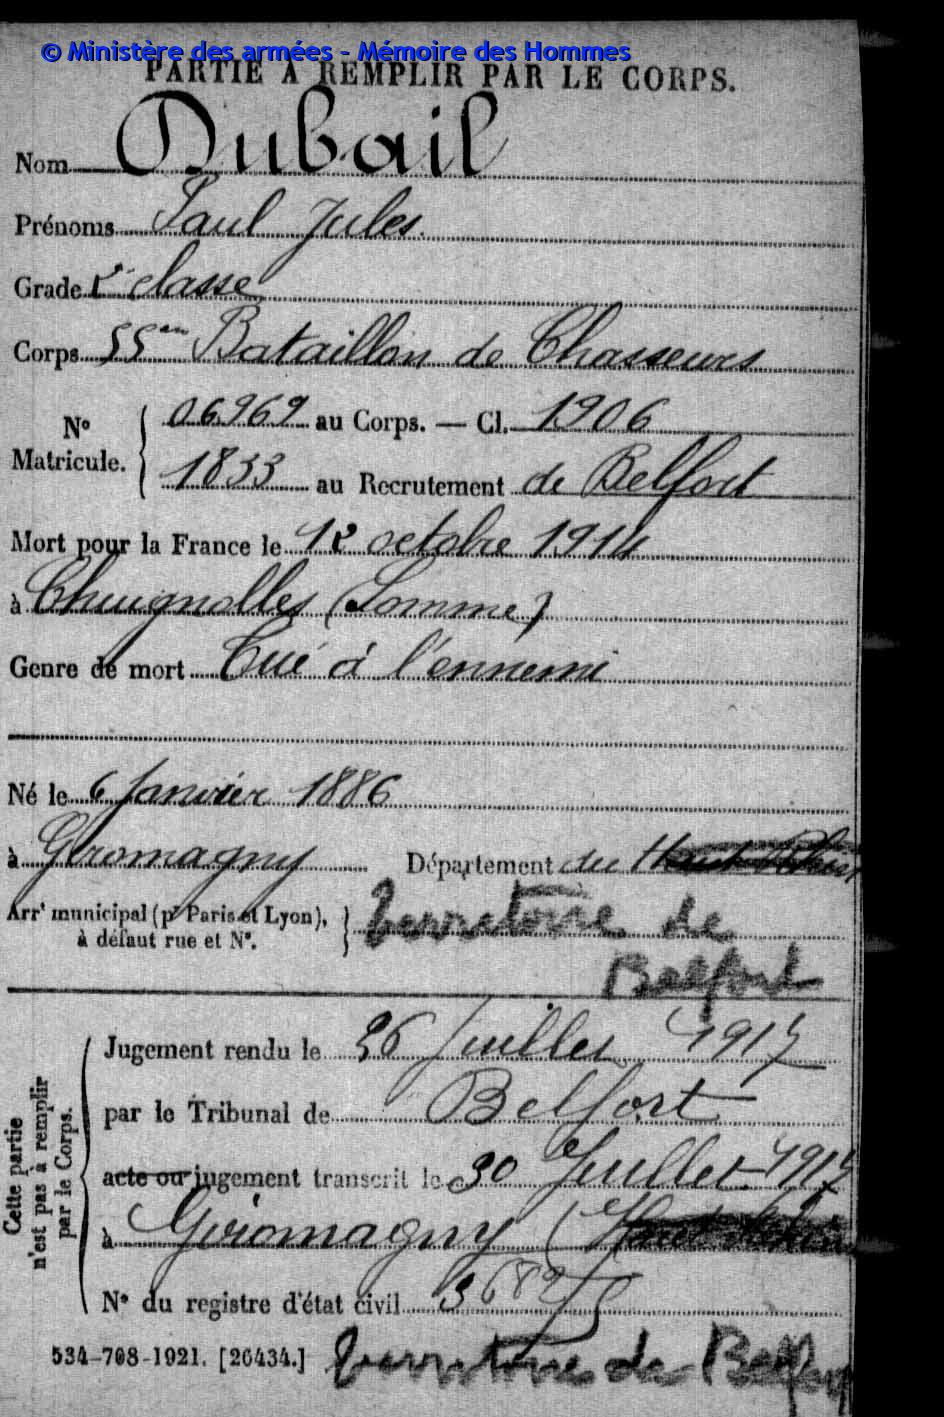 © Ministère des armées - Mémoire des Hommes
PARTIE A REMPLIR PAR LE CORPS.
Nom Dubail
Prénoms Paul Jules.
Grade 2e classe
Corps 55em Bataillon de Chasseurs
No Matricule. 06969 au Corps. — Cl. 1906
1833 au Recrutement de Belfort
Mort pour la France le 12 octobre 1914
à Chuignolles (Somme)
Genre de mort Tué à l'ennemi
Né le 6 Janvier 1886
à Giromagny Département du Haut Rhin
Arrt municipal (pr Paris et Lyon), à défaut rue et No. Territoire de
Belfort
Cette partie n'est pas à remplir par le Corps.
Jugement rendu le 26 Juillet 1917
par le Tribunal de Belfort
acte ou jugement transcrit le 30 Juillet 1917
à Giromagny (Haut Rhin
No du registre d'état civil
534-708-1921. [26434.] Territoire de Belfort